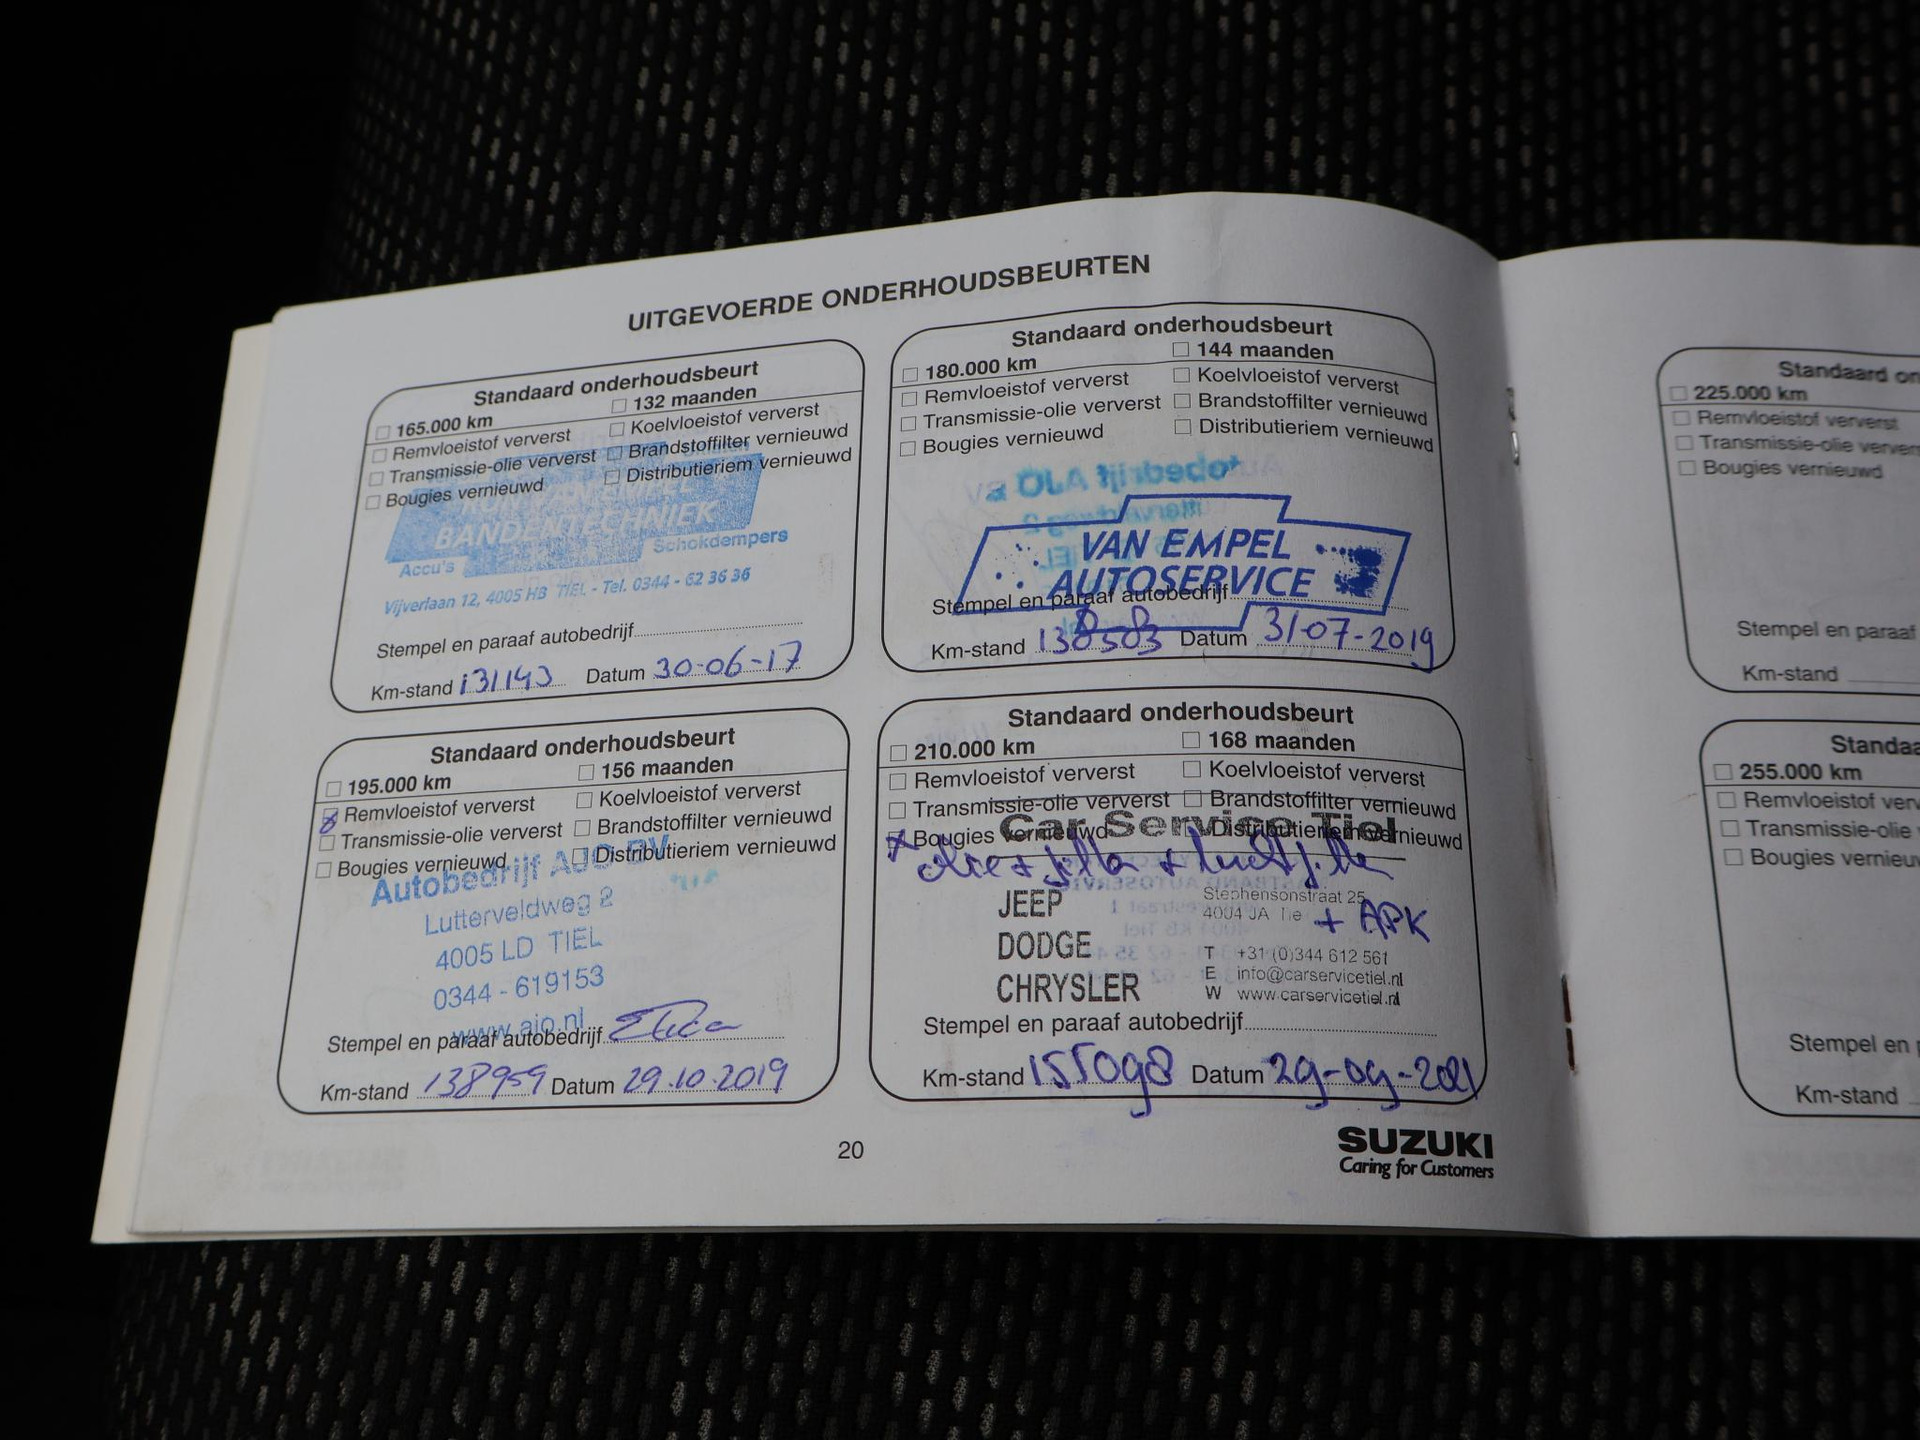 UITGEVOERDE ONDERHOUDSBEURTEN
Standaard onderhoudsbeurt
165.000 km 132 maanden
Remvloeistof ververst Koelvloeistof ververst
Transmissie-olie ververst Brandstoffilter vernieuwd
Bougies vernieuwd Distributieriem vernieuwd
BANDENTECHNIEK
Accu's Schokdempers
Vijverlaan 12, 4005 HB TIEL - Tel. 0344 - 62 36 36
Stempel en paraaf autobedrijf
Km-stand 131143 Datum 30-06-17
Standaard onderhoudsbeurt
180.000 km 144 maanden
Remvloeistof ververst Koelvloeistof ververst
Transmissie-olie ververst Brandstoffilter vernieuwd
Bougies vernieuwd Distributieriem vernieuwd
VAN EMPEL
AUTOSERVICE
Stempel en paraaf autobedrijf
Km-stand 138503 Datum 31-07-2019
Standaard onderhoudsbeurt
195.000 km 156 maanden
Remvloeistof ververst Koelvloeistof ververst
Transmissie-olie ververst Brandstoffilter vernieuwd
Bougies vernieuwd Distributieriem vernieuwd
Autobedrijf AJO BV
Lutterveldweg 2
4005 LD TIEL
0344 - 619153
www.ajo.nl
Stempel en paraaf autobedrijf
Km-stand 138959 Datum 29.10.2019
Standaard onderhoudsbeurt
210.000 km 168 maanden
Remvloeistof ververst Koelvloeistof ververst
Transmissie-olie ververst Brandstoffilter vernieuwd
Bougies vernieuwd Distributieriem vernieuwd
Car Service Tiel
olie + filter + luchtfilter
JEEP Stephensonstraat 25
4004 JA Tiel + APK
DODGE T +31 (0)344 612 561
E info@carservicetiel.nl
CHRYSLER W www.carservicetiel.nl
Stempel en paraaf autobedrijf
Km-stand 155098 Datum 29-09-2021
20
SUZUKI
Caring for Customers
Standaard on
225.000 km
Remvloeistof ververst
Transmissie-olie ververs
Bougies vernieuwd
Stempel en paraaf
Km-stand
Standaa
255.000 km
Remvloeistof verv
Transmissie-olie
Bougies vernieuw
Stempel en p
Km-stand